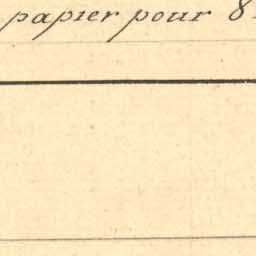 papier pour 8